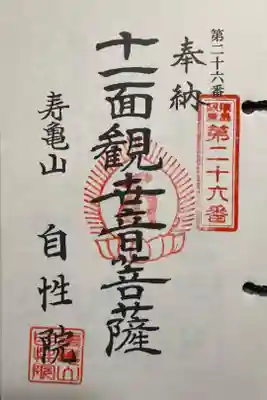 第二十六番
第二十六番
奉納
十一面観世音菩薩
寿亀山 自性院